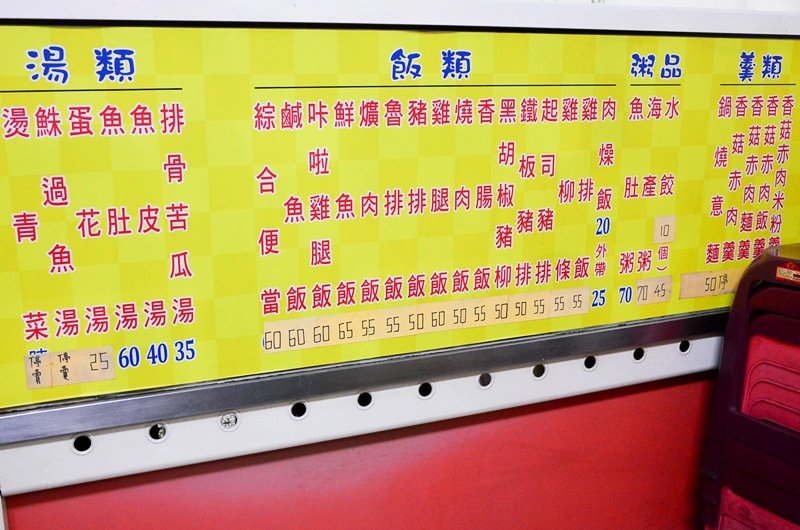 湯類
燙青菜 停賣
鮢過魚湯 停賣
蛋花湯 25
魚肚湯 60
魚皮湯 40
排骨苦瓜湯 35
飯類
綜合便當 60
鹹魚飯 60
咔啦雞腿飯 60
鮮魚飯 65
爌肉飯 55
魯排飯 55
豬排飯 50
雞腿飯 60
燒肉飯 50
香腸飯 55
黑胡椒豬柳 50
鐵板豬排 50
起司豬排 55
雞柳條 55
雞排飯 55
肉燥飯 20 外帶 25
粥品
魚肚粥 70
海產粥 70
水餃 10個) 45
羹類
鍋燒意麵
香菇赤肉羹
香菇赤肉麵羹
香菇赤肉飯羹
香菇赤肉米粉羹
50 停